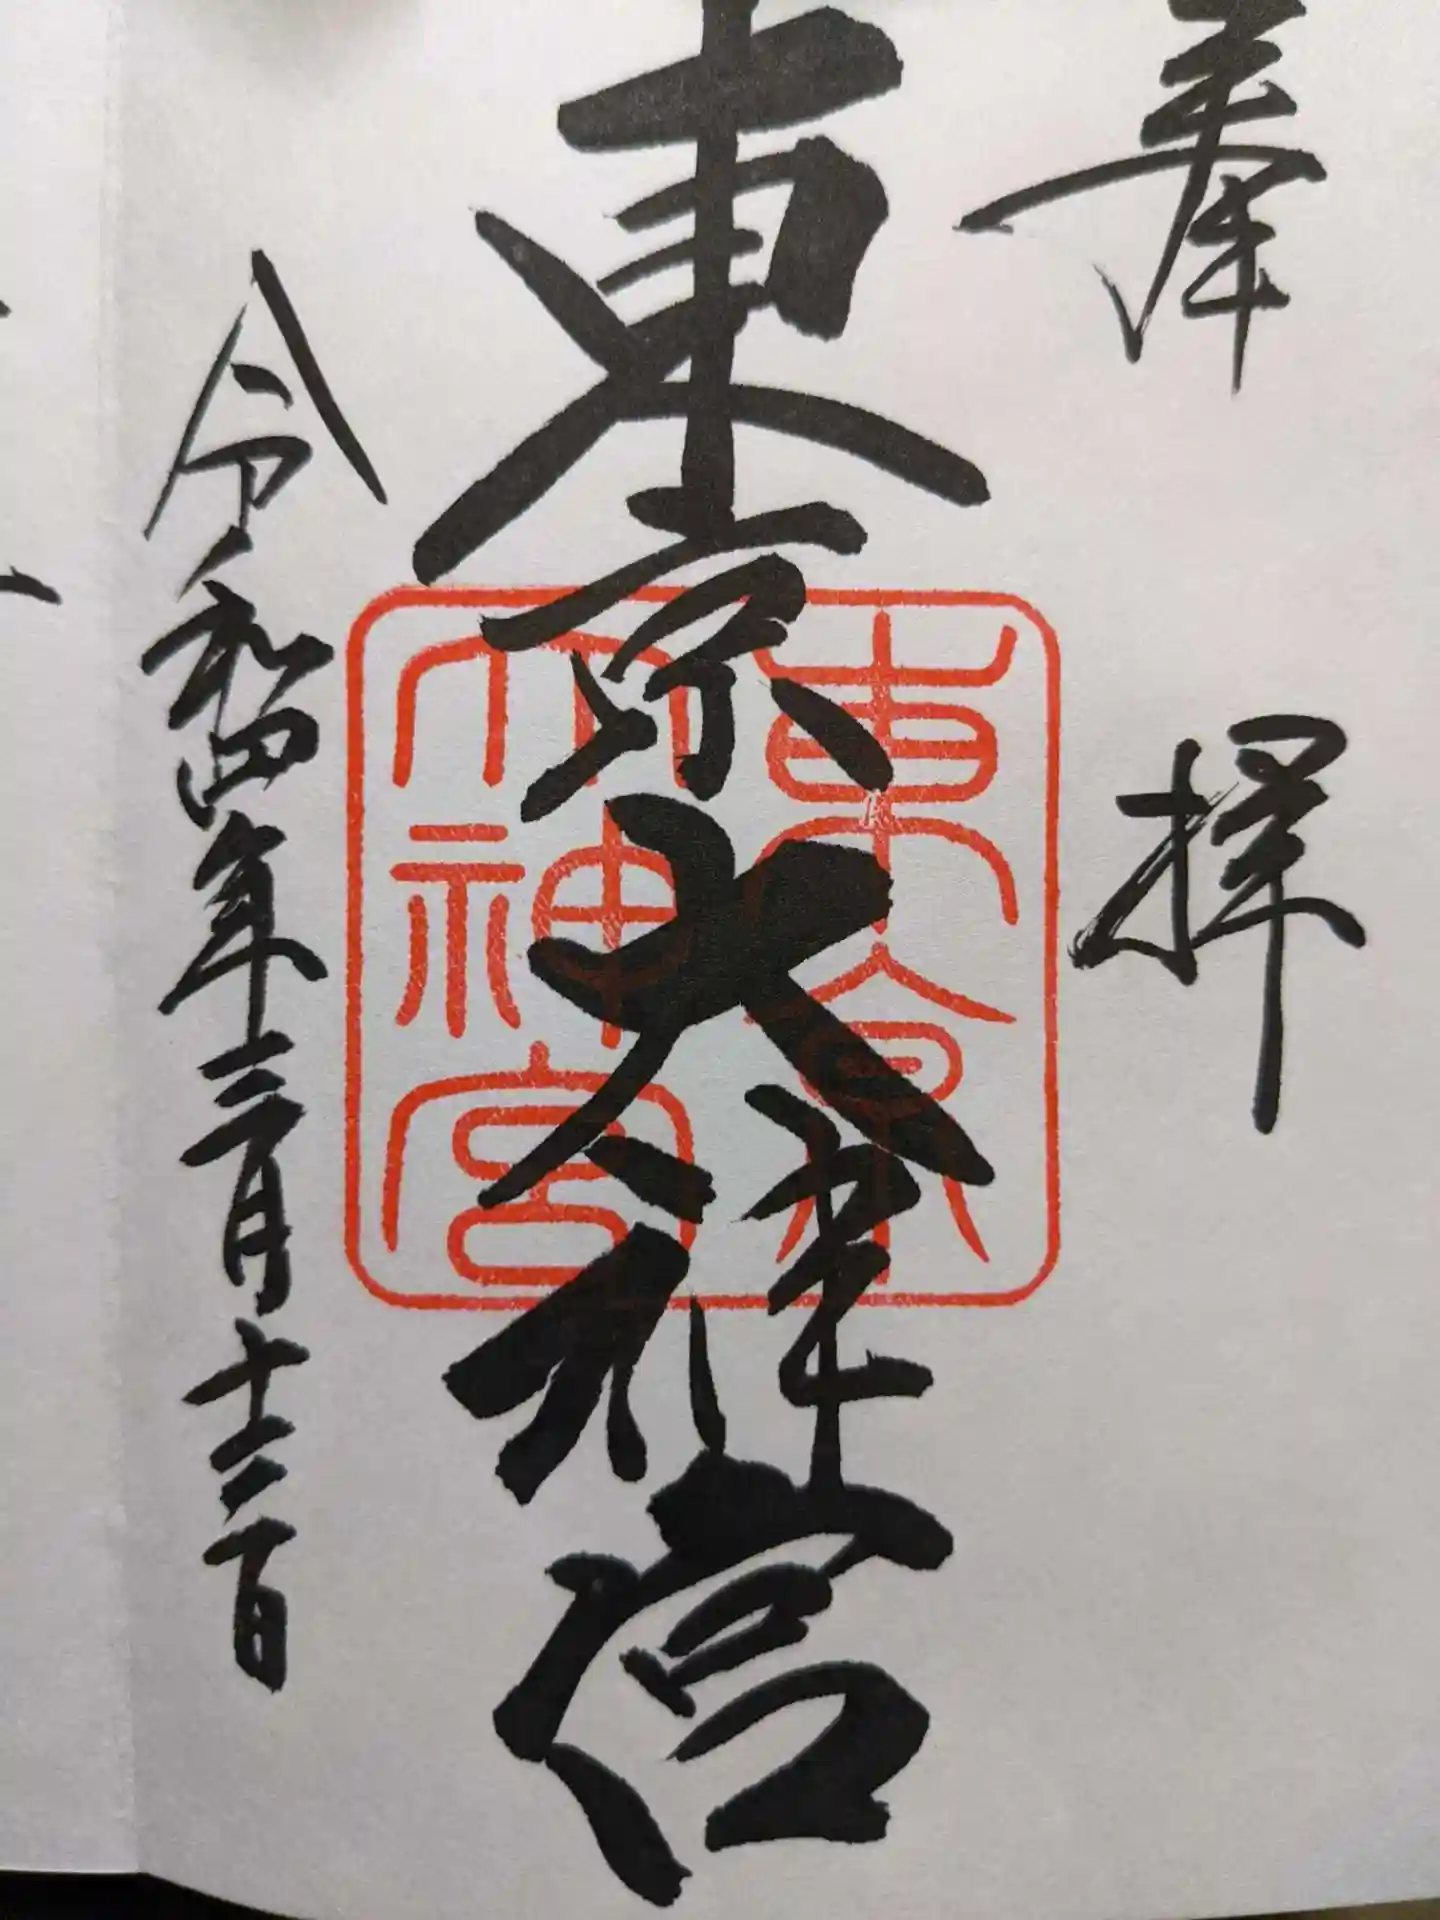 奉拝
東京大神宮
令和四年三月十三日
東京
大神宮